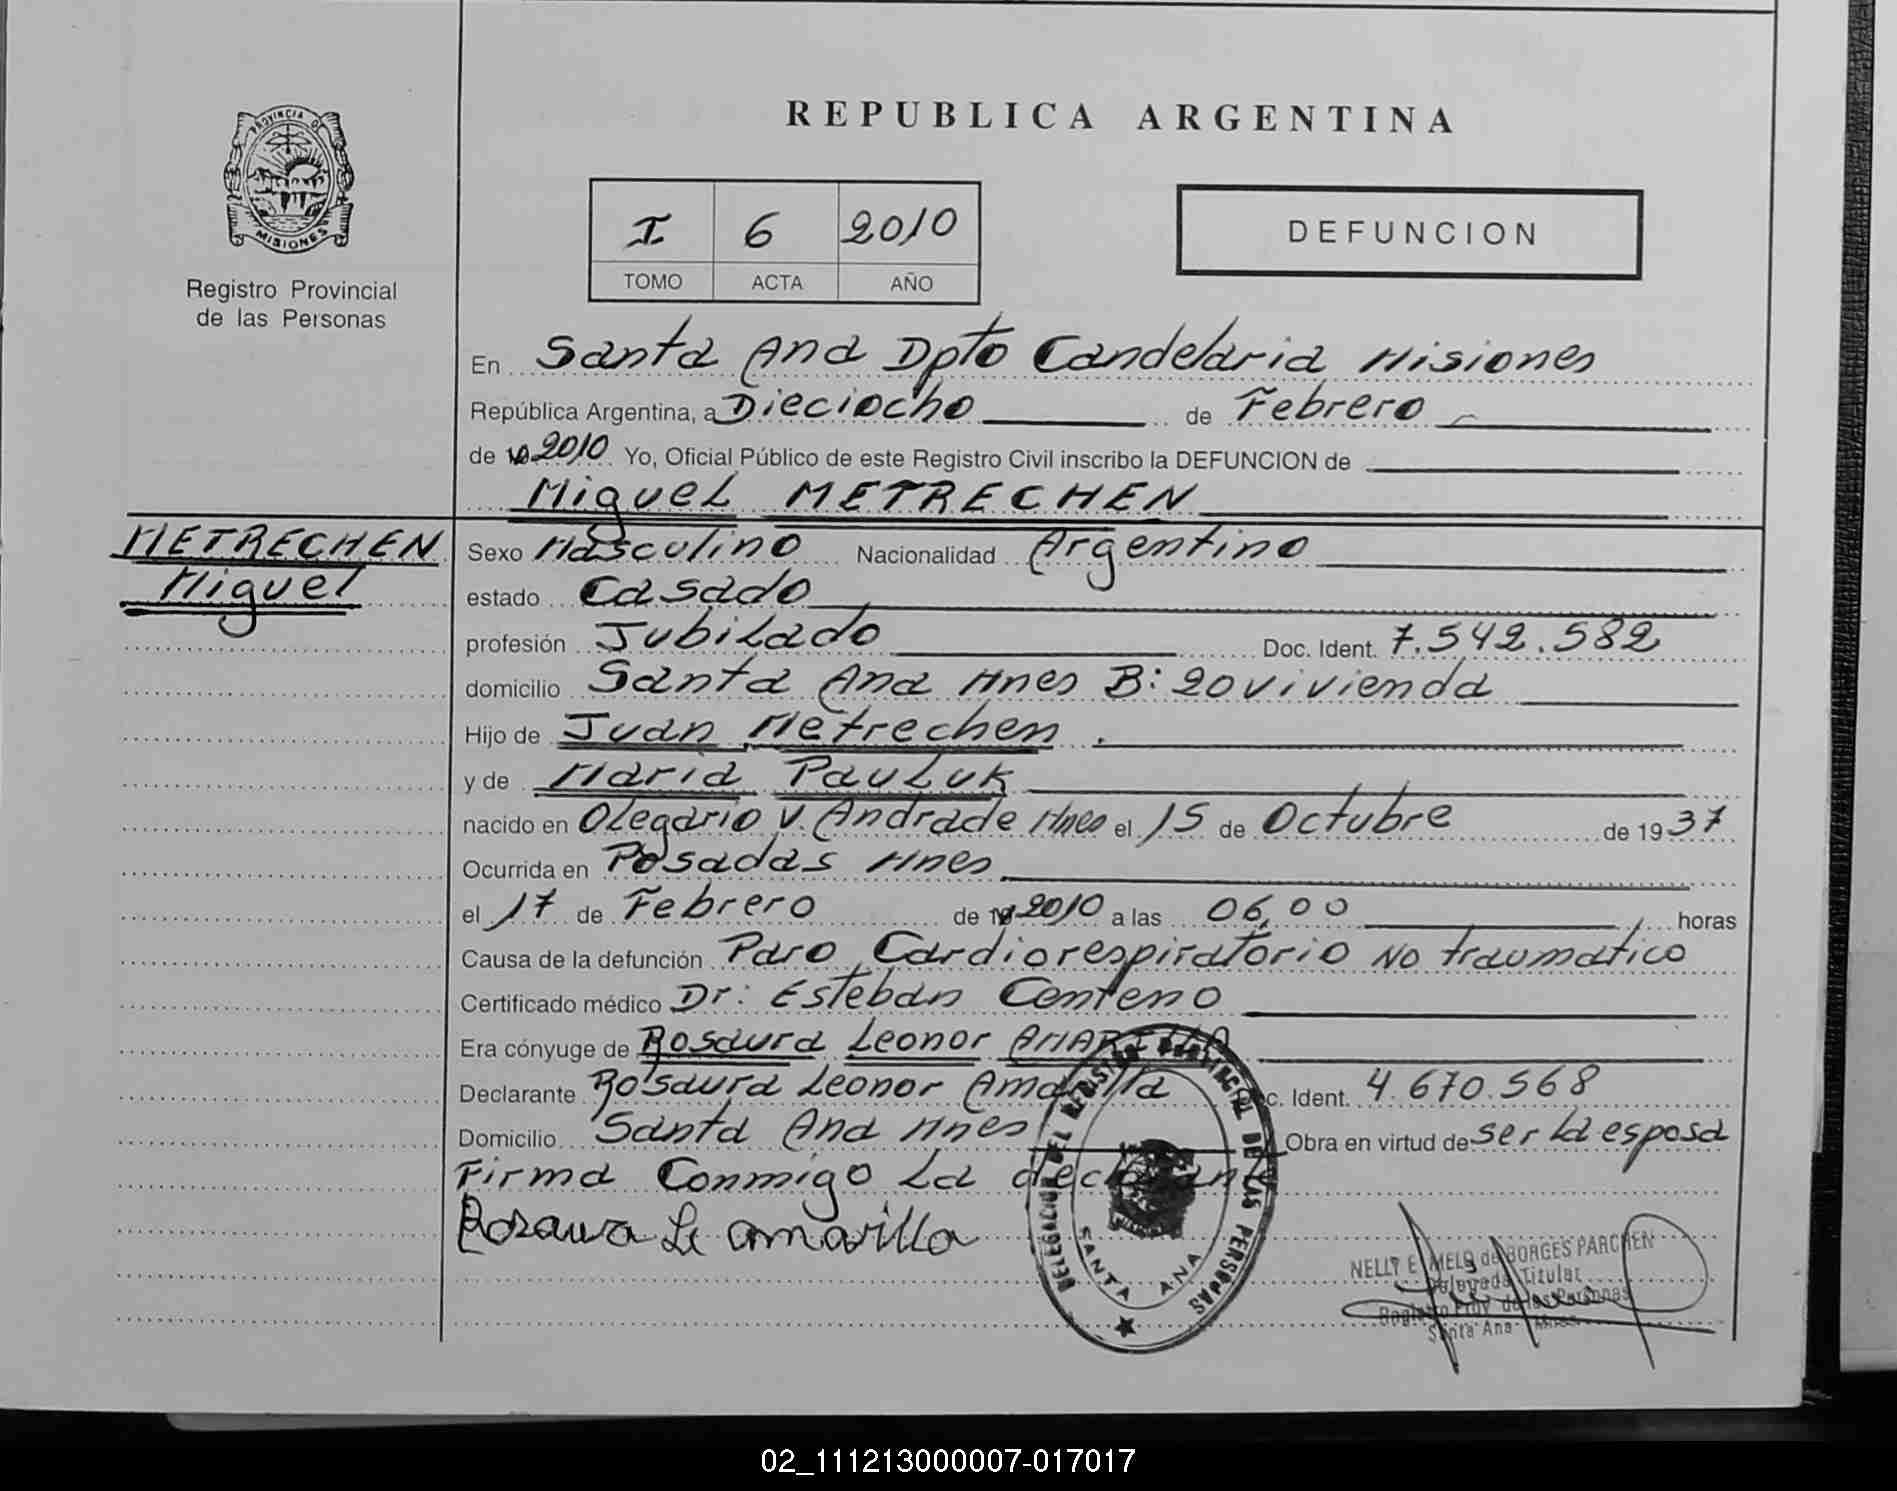 REPUBLICA ARGENTINA
PROVINCIA DE
MISIONES
Registro Provincial
de las Personas
I 6 2010
TOMO ACTA AÑO
DEFUNCION
En Santa Ana Dpto Candelaria Misiones
República Argentina, a Dieciocho de Febrero
de 19 2010 Yo, Oficial Público de este Registro Civil inscribo la DEFUNCION de
Miguel METRECHEN
METRECHEN
Miguel
Sexo Masculino Nacionalidad Argentino
estado Casado
profesión Jubilado Doc. Ident. 7.542.582
domicilio Santa Ana Mnes B: 20 vivienda
Hijo de Juan Metrechen.
y de Maria Pauluk
nacido en Olegario V. Andrade Mnes el 15 de Octubre de 1937
Ocurrida en Posadas Mnes
el 17 de Febrero de 19 2010 a las 06,00 horas
Causa de la defunción Paro Cardiorespiratorio No traumatico
Certificado médico Dr: Esteban Centeno
Era cónyuge de Rosaura Leonor AMARILLA
Declarante Rosaura Leonor Amarilla Doc. Ident. 4.670.568
Domicilio Santa Ana Mnes Obra en virtud de ser la esposa
Firma Conmigo La declarante
Rosaura L amarilla
DELEGACION DEL REGISTRO PROVINCIAL DE LAS PERSONAS
SANTA ANA
NELLY E. MELO de BORGES PARCHEN
Delegada Titular
Registro Prov. de las Personas
Santa Ana Mnes.
02_111213000007-017017